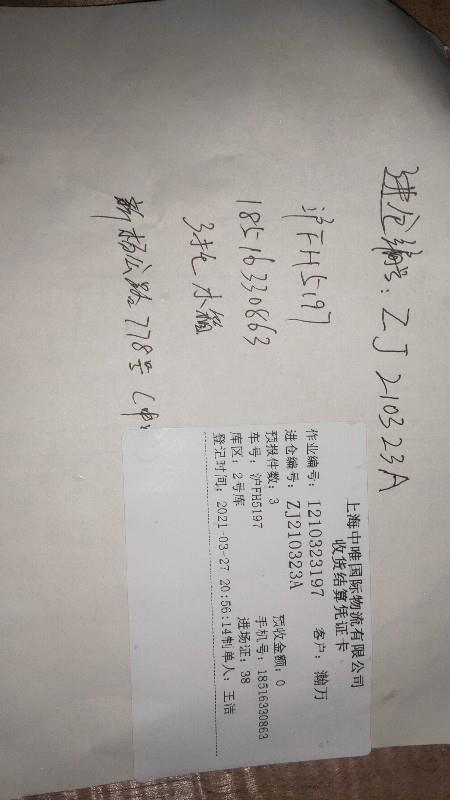 进仓编号: ZJ 210323A
沪FH5197
18516330863
3托 水箱
新杨公路778号(中
上海中唯国际物流有限公司
收货结算凭证卡
作业编号: I210323197 客户: 瀚万
进仓编号: ZJ210323A
预报件数: 3 预收金额: 0
车号: 沪FH5197 手机号: 18516330863
库区: 2号库 进场证: 38
登记时间: 2021-03-27 20:56:14制单人: 王洁